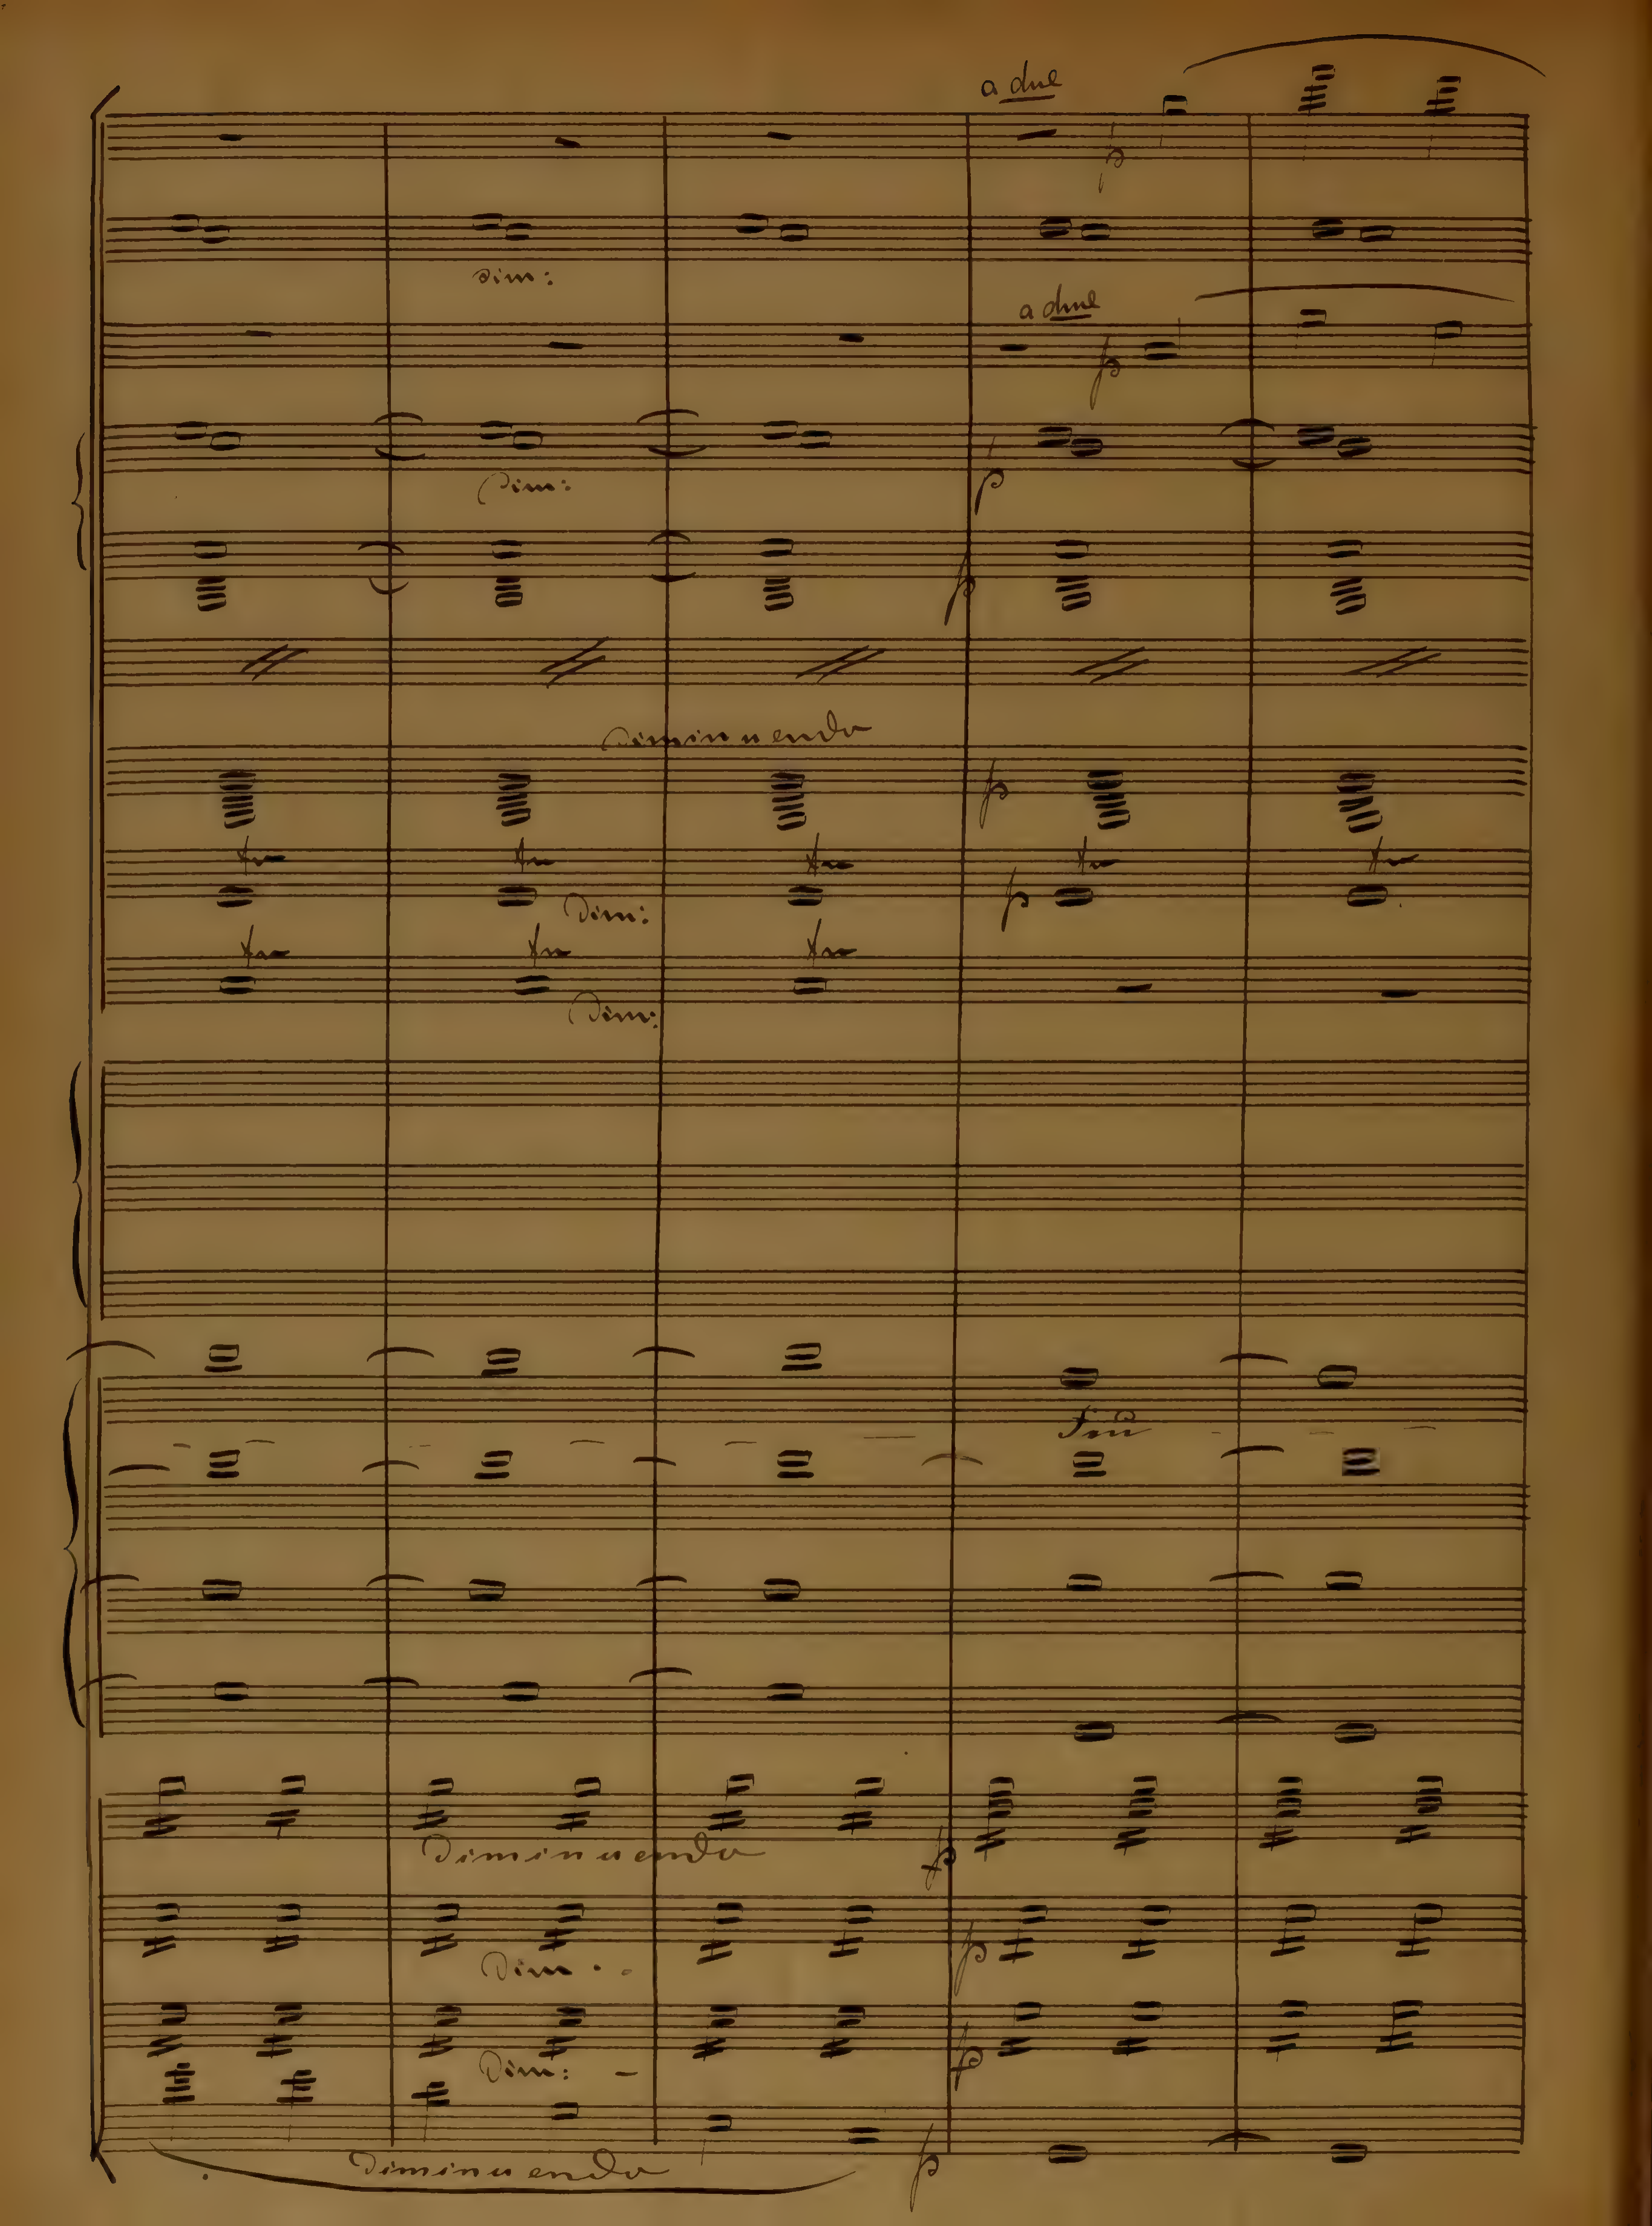 a due
p
dim:
a due
p
Dim:
p
p
Diminuendo
p
Dim:
p
Dim:
Diminuendo
p
Dim
p
Dim:
p
Diminuendo
p